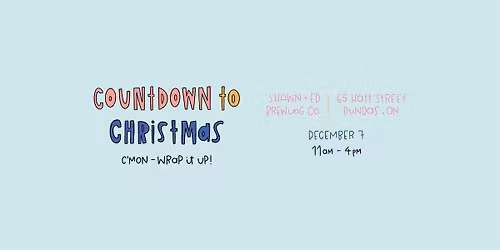 COUNTDOWN to
CHRiStMaS
C'MON - WRaP it UP!
SHAWN + ED
BREWiNG CO
65 Hatt StREEt
DUNDaS, ON
DECEMBER 7
11am - 4pm